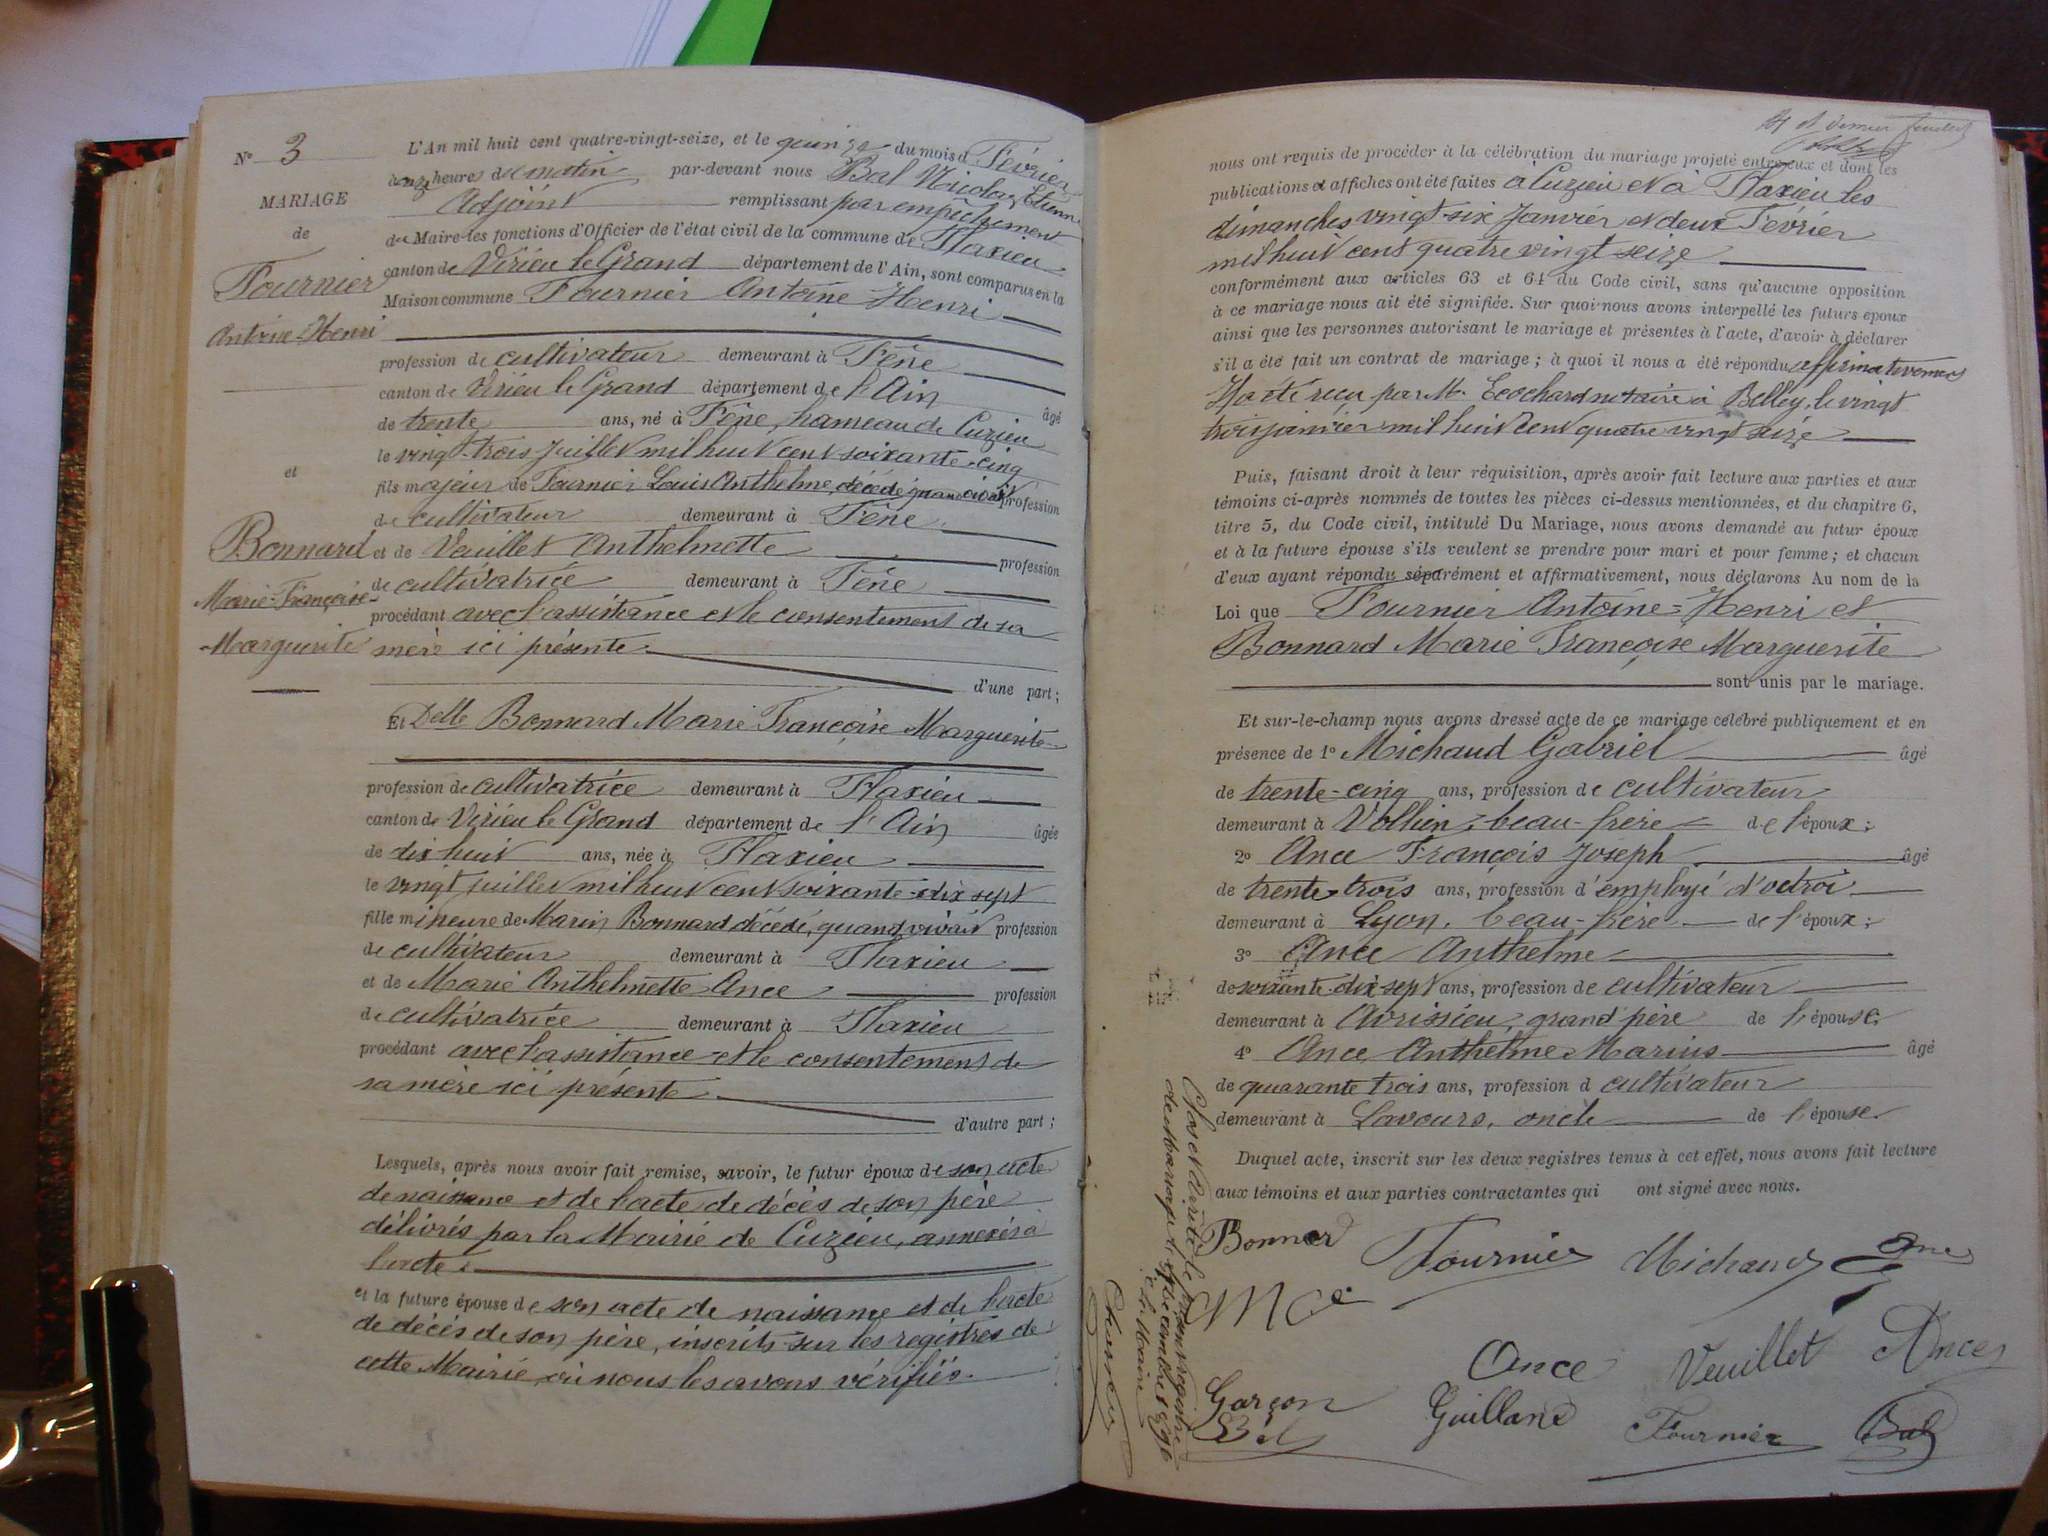 N° 3
MARIAGE
de
Fournier
Antoine-Henri
et
Bonnard
Marie-Françoise-
Marguerite
L'An mil huit cent quatre-vingt-seize, et le quinze du mois d Février
à onze heures du matin par-devant nous Bal Nicolas Etienne
Adjoint remplissant par empêchement
du Maire les fonctions d'Officier de l'état civil de la commune de Flaxieu
canton de Virieu le Grand département de l'Ain, sont comparus en la
Maison commune Fournier Antoine-Henri
profession de cultivateur demeurant à Fène
canton de Virieu le Grand département de l'Ain âgé
de trente ans, né à Fène, hameau de Cuzieu
le vingt-trois Juillet mil huit cent soixante-cinq
fils majeur de Fournier Louis Anthelme, décédé quand vivait profession
de cultivateur demeurant à Fène
et de Veuillet Anthelmette profession
de cultivatrice demeurant à Fène
procédant avec l'assistance et le consentement de sa
mère ici présente d'une part ;
Et Delle Bonnard Marie Françoise Marguerite
profession de cultivatrice demeurant à Flaxieu
canton de Virieu le Grand département de l'Ain âgée
de dix huit ans, née à Flaxieu
le vingt juillet mil huit cent soixante-dix sept
fille mineure de Marin Bonnard décédé, quand vivait profession
de cultivateur demeurant à Flaxieu
et de Marie Anthelmette Ance profession
de cultivatrice demeurant à Flaxieu
procédant avec l'assistance et le consentement de
sa mère ici présente d'autre part ;
Lesquels, après nous avoir fait remise, savoir, le futur époux de son acte
de naissance et de l'acte de décès de son père
délivrés par la Mairie de Cuzieu, annexés à
l'acte.
et la future épouse de son acte de naissance et de l'acte
de décès de son père, inscrits sur les registres de
cette Mairie où nous les avons vérifiés.
et dernier feuillet
nous ont requis de procéder à la célébration du mariage projeté entre eux et dont les
publications et affiches ont été faites à Cuzieu et à Flaxieu les
dimanches vingt-six Janvier et deux Février
mil huit cent quatre vingt seize
conformément aux articles 63 et 64 du Code civil, sans qu'aucune opposition
à ce mariage nous ait été signifiée. Sur quoi nous avons interpellé les futurs époux
ainsi que les personnes autorisant le mariage et présentes à l'acte, d'avoir à déclarer
s'il a été fait un contrat de mariage ; à quoi il nous a été répondu affirmativement
Il a été reçu par M. Ecochard notaire à Belley, le vingt
trois janvier mil huit cent quatre vingt seize
Puis, faisant droit à leur réquisition, après avoir fait lecture aux parties et aux
témoins ci-après nommés de toutes les pièces ci-dessus mentionnées, et du chapitre 6,
titre 5, du Code civil, intitulé Du Mariage, nous avons demandé au futur époux
et à la future épouse s'ils veulent se prendre pour mari et pour femme ; et chacun
d'eux ayant répondu séparément et affirmativement, nous déclarons Au nom de la
Loi que Fournier Antoine-Henri et
Bonnard Marie Françoise Marguerite
sont unis par le mariage.
Et sur-le-champ nous avons dressé acte de ce mariage célébré publiquement et en
présence de 1° Michaud Gabriel âgé
de trente-cinq ans, profession de cultivateur
demeurant à Vollien, beau-frère de l'époux ;
2° Ance François Joseph âgé
de trente-trois ans, profession d'employé d'octroi
demeurant à Lyon, beau-frère de l'époux ;
3° Ance Anthelme
de soixante-dix-sept ans, profession de cultivateur
demeurant à Avrissieu, grand père de l'épouse
4° Ance Anthelme Marius âgé
de quarante trois ans, profession d cultivateur
demeurant à Lavours, oncle de l'épouse.
Duquel acte, inscrit sur les deux registres tenus à cet effet, nous avons fait lecture
aux témoins et aux parties contractantes qui ont signé avec nous.
Bonnard Fournier Michaud
Ance Veuillet Ance
Garçon Guilland Fournier Bal
Clos et arrêté le présent registre
de mariage le décembre 1896
Le Maire